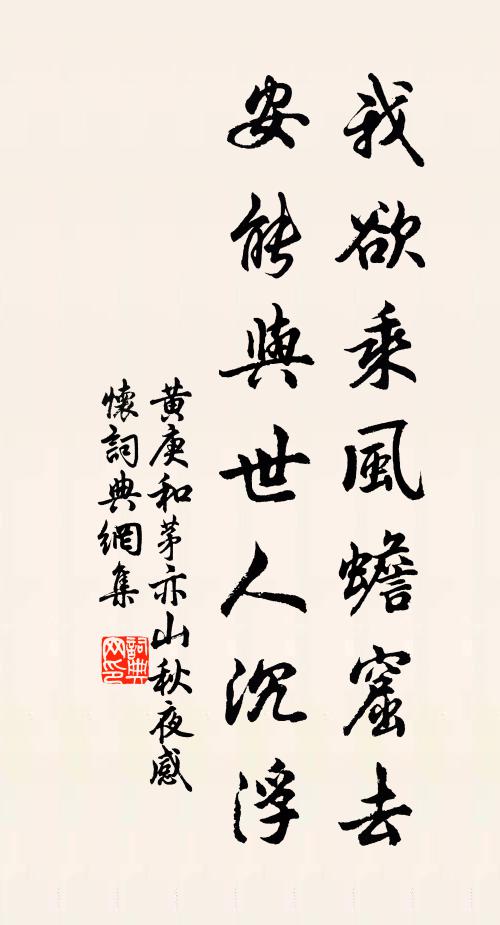 我欲乘風蟾窟去
安能與世人沉浮
黃庚和茅亦山秋夜感
懷詞典網集
詞典网印